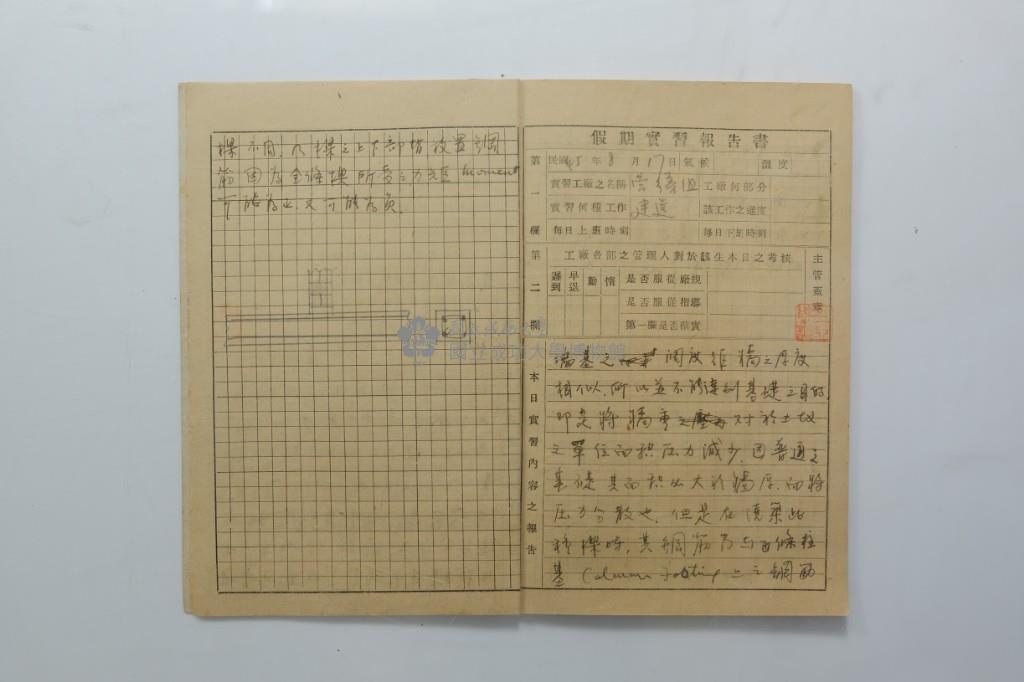 樑不同，凡樑之上下部皆放置鋼
筋因為全條樑所受之力 moment
可能為正，又可能為負。
國立成功大學博物館
假期實習報告書
第一欄
民國45年8月17日氣候 溫度
實習工廠之名稱 營繕組 工廠何部分
實習何種工作 建造 該工作之進度
每日上班時刻 每日下班時刻
第二欄
工廠各部之管理人對於該生本日之考核
遲到 早退 勤 惰 是否服從廠規
是否服從指導
第一欄是否確實
主管蓋章
本日實習內容之報告
牆基之 闊度 牆之厚度
相似，所以並不能達到基礎之目的
即是將牆重 對於土坡
之單位面積压力減少，因普通之
基礎其面積必大於牆厚，而將
压力分散也，但是在澆築此
種樑時，其鋼筋 與 條柱
基 (Column footing 上之鋼